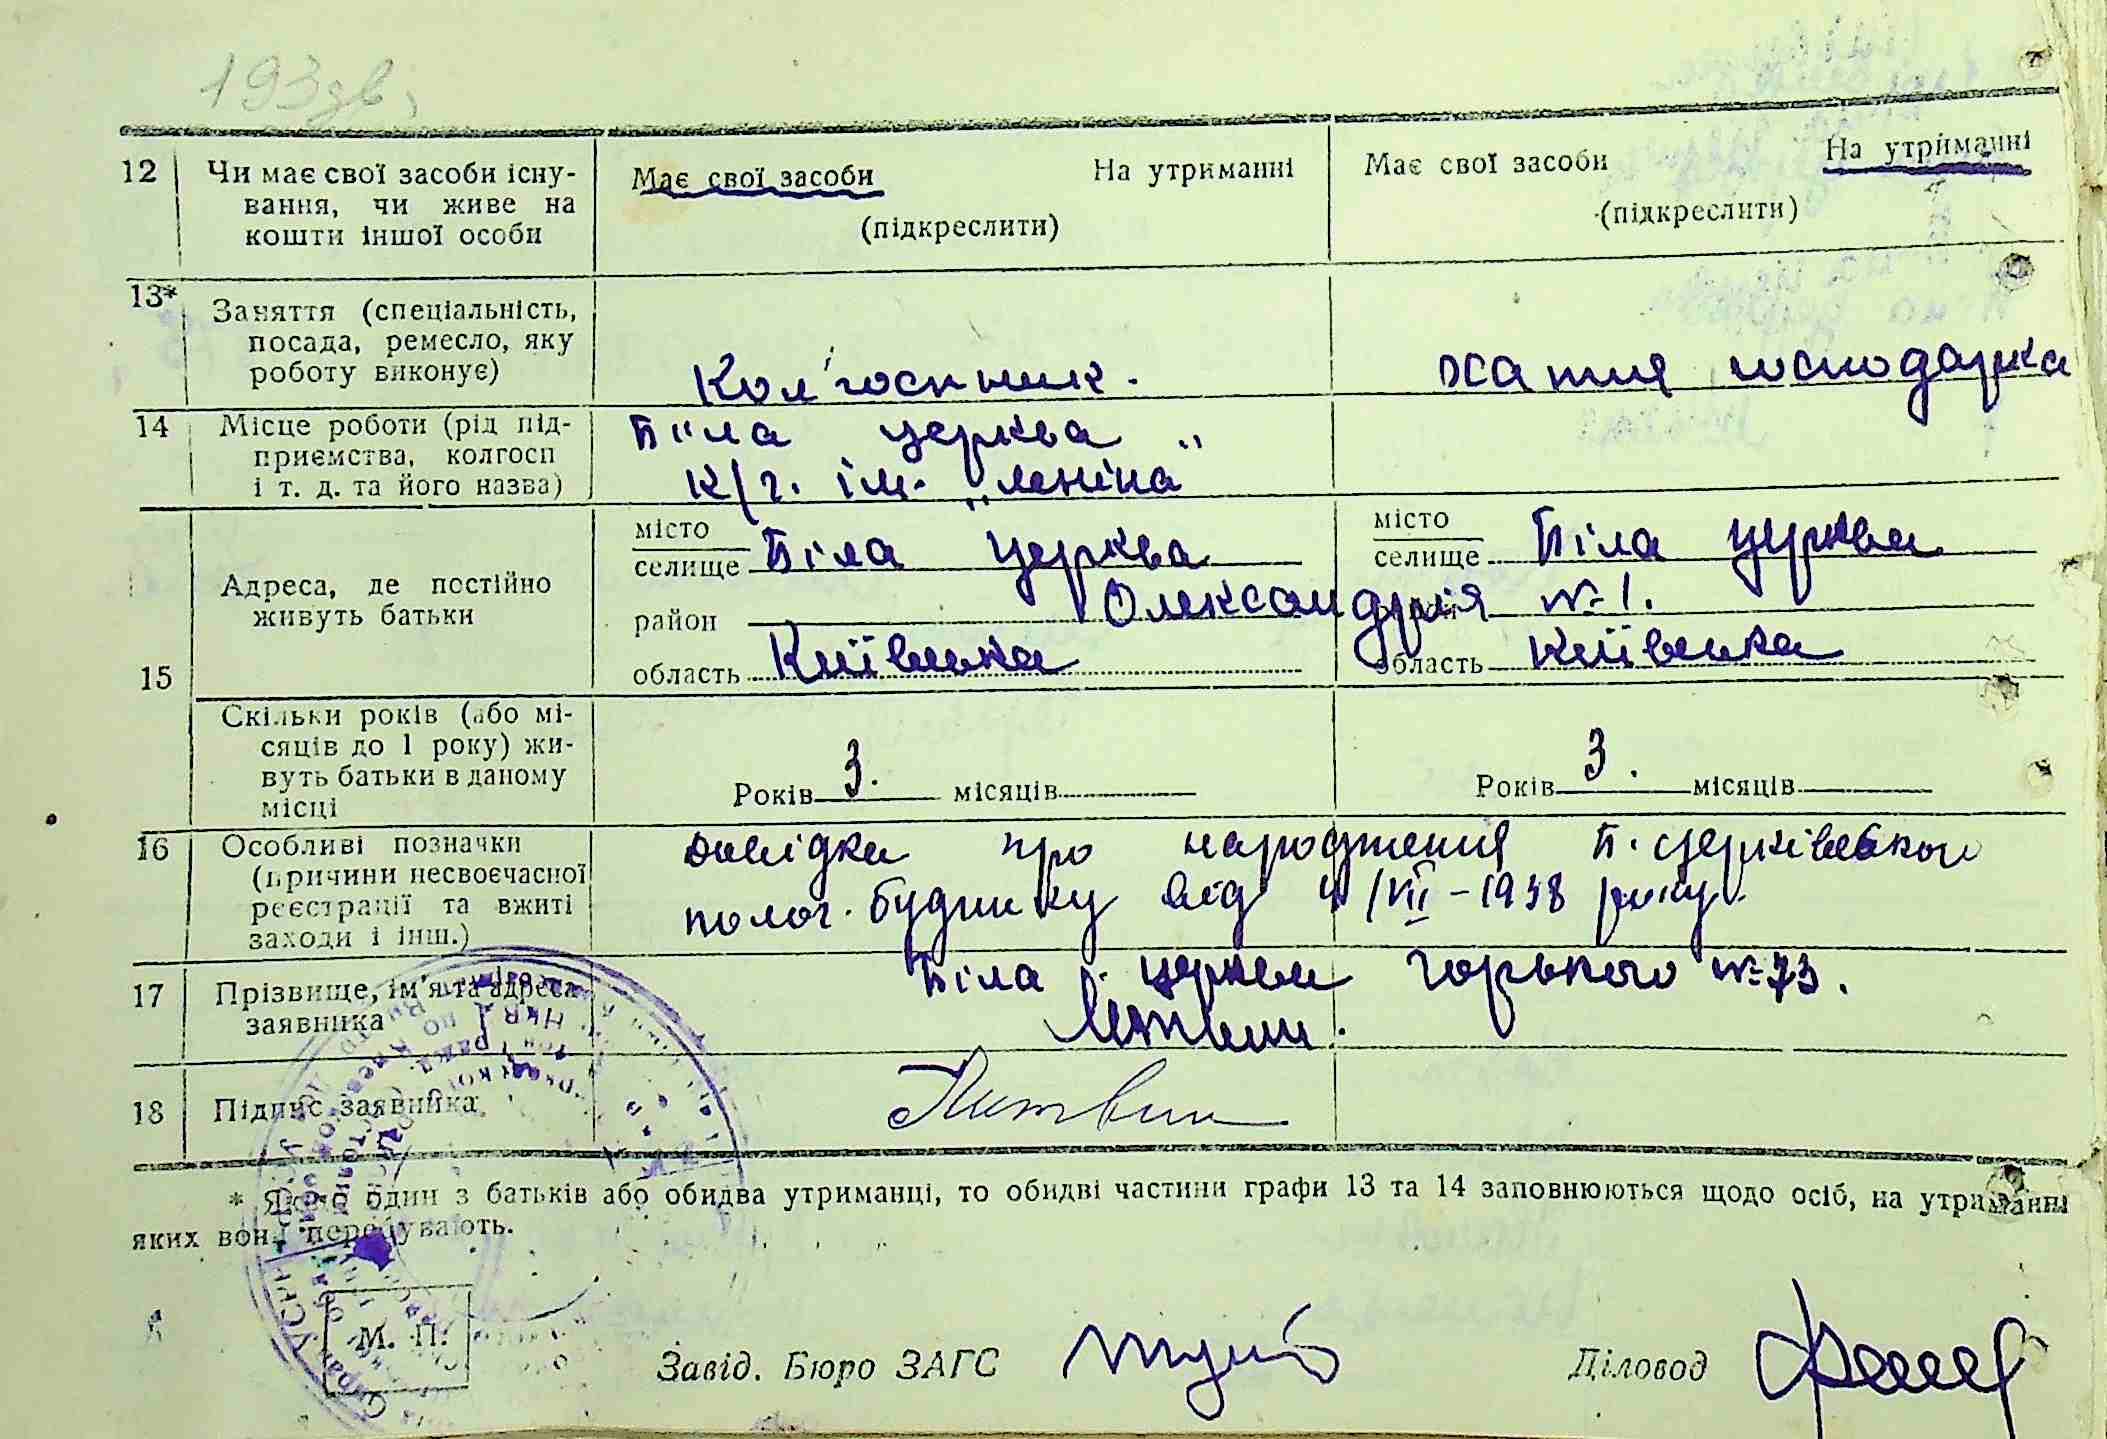 193зв.
12 Чи має свої засоби існу- Має свої засоби На утриманні Має свої засоби На утриманні
вання, чи живе на (підкреслити) (підкреслити)
кошти іншої особи
13* Заняття (спеціальність,
посада, ремесло, яку
роботу виконує) Колгоспник. хатня господарка
14 Місце роботи (рід під- Біла церква
приємства, колгосп к/г. ім. „Леніна"
і т. д. та його назва)
15 Адреса, де постійно
живуть батьки
місто Біла церква місто Біла церква
селище селище
район Олександрія № 1.
область Київська область Київська
Скільки років (або мі-
сяців до 1 року) жи-
вуть батьки в даному Років 3. місяців Років 3. місяців
місці
16 Особливі позначки довідка про народження Б. церківського
(причини несвоєчасної полог. будинку від 4/VII-1938 року.
реєстрації та вжиті
заходи і інш.)
17 Прізвище, ім'я та адреса Біла церква Горького № 73.
заявника Литвин.
18 Підпис заявника Литвин
* Якщо один з батьків або обидва утриманці, то обидві частини графи 13 та 14 заповнюються щодо осіб, на утриманні
яких вони перебувають.
М. П.
Завід. Бюро ЗАГС Діловод